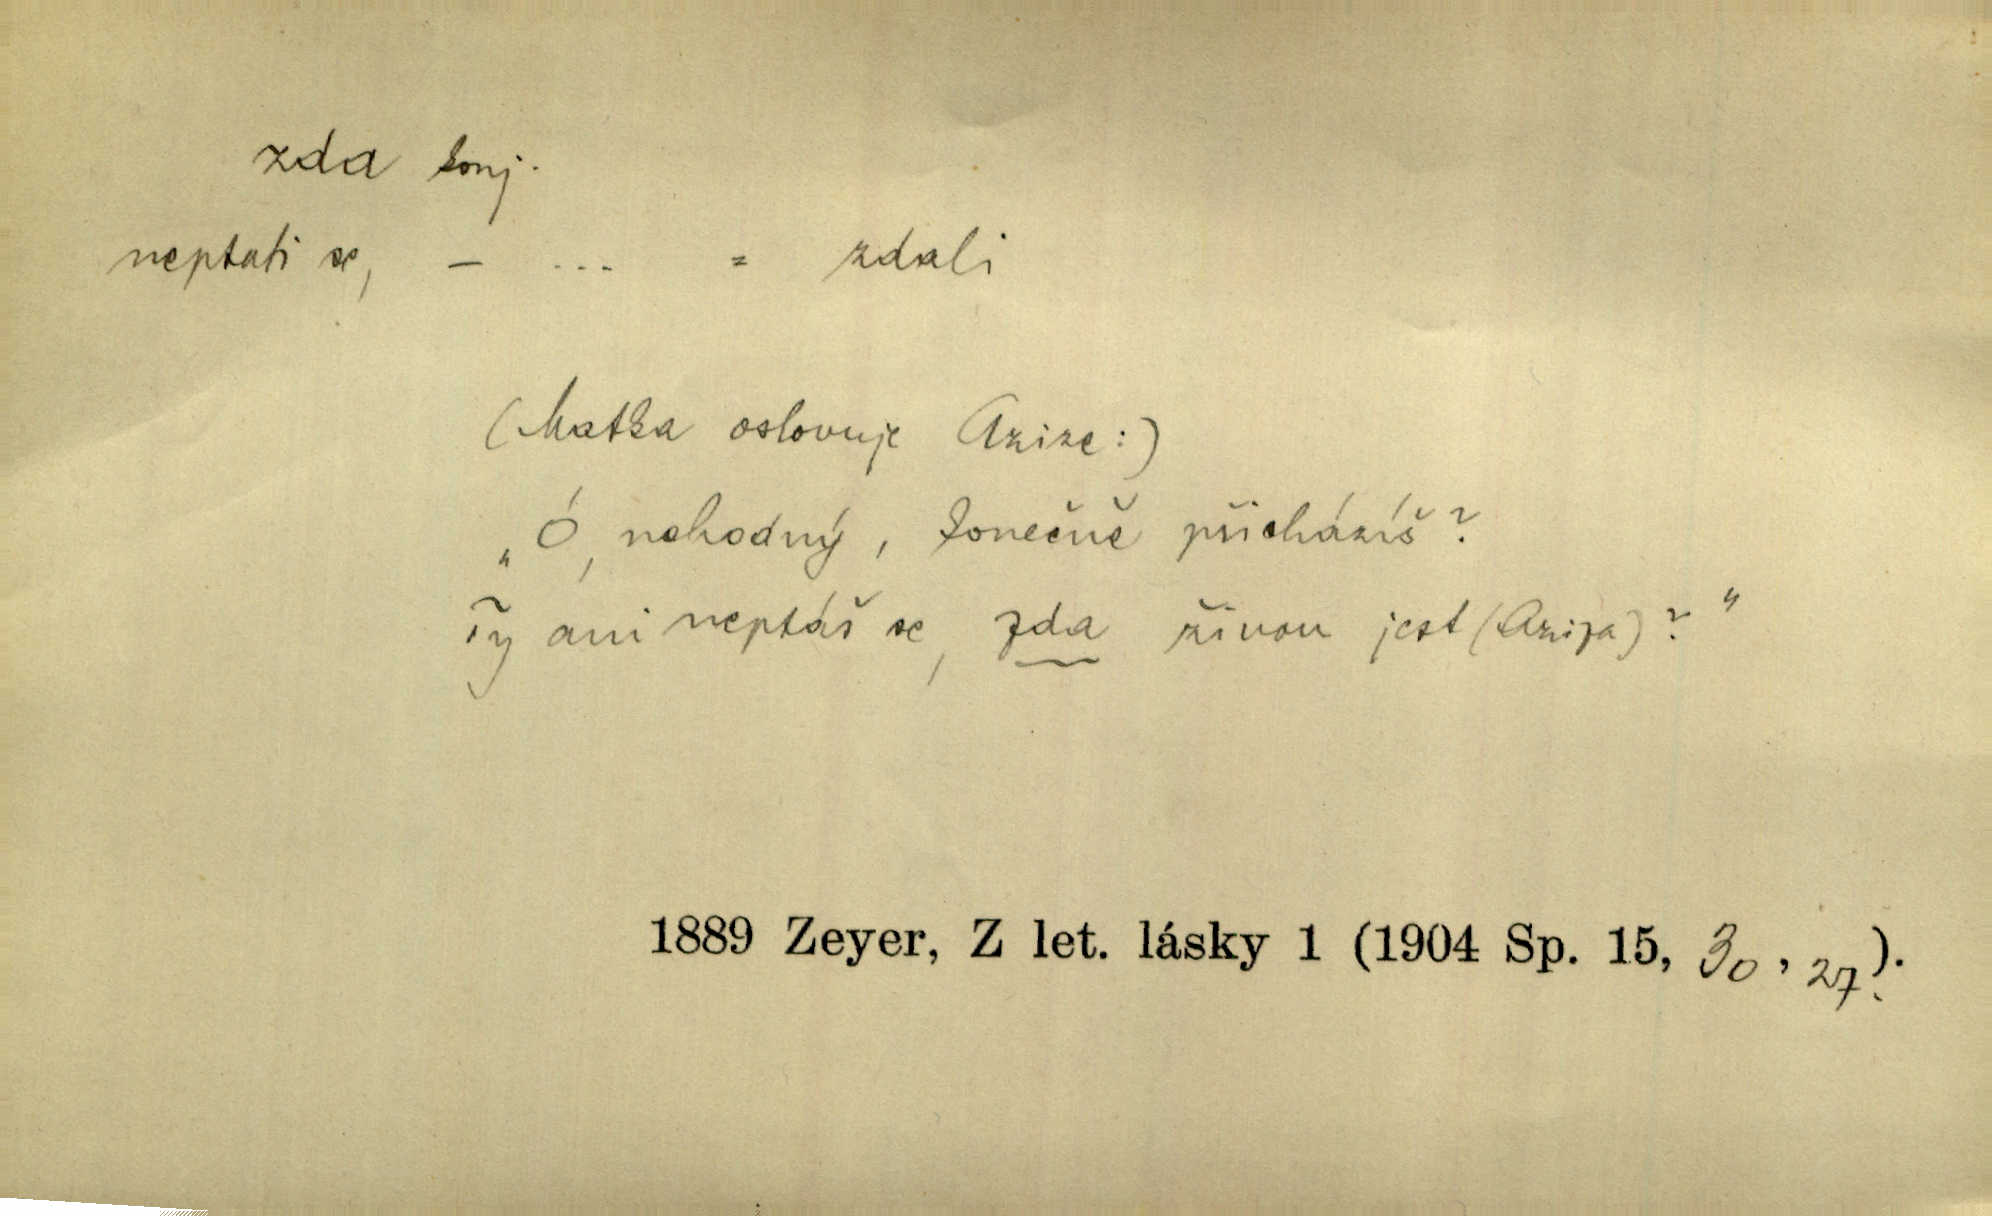 zda konj.
neptati se, – ... = zdali
(Matka oslovuje Azize:)
„Ó, nehodný, konečně přicházíš?
Ty ani neptáš se, zda živou jest (Aziza)?"
1889 Zeyer, Z let. lásky 1 (1904 Sp. 15, 30, 27).